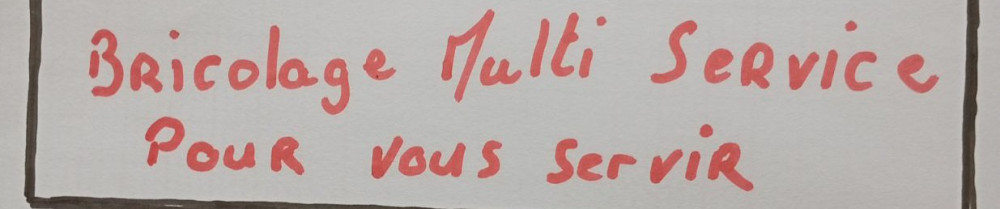 Bricolage Multi Service
Pour vous servir